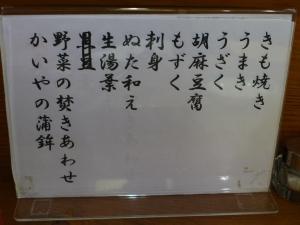 きも焼き
うまき
うざく
胡麻豆腐
もずく
刺身
ぬた和え
生湯葉
野菜の焚きあわせ
かいやの蒲鉾